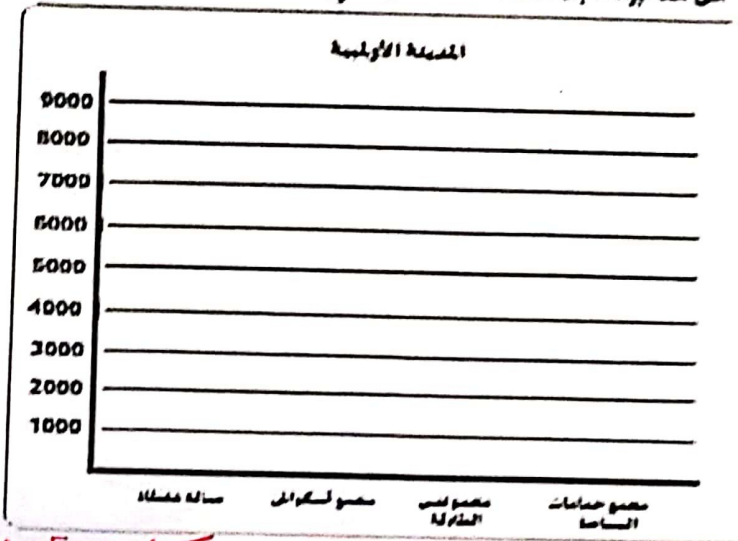 المدينة الأولمبية
9000
8000
7000
6000
5000
4000
3000
2000
1000
صالة مغطاة
مجمع اسكواش
مجمع تنس
الطاولة
مجمع حمامات
السباحة